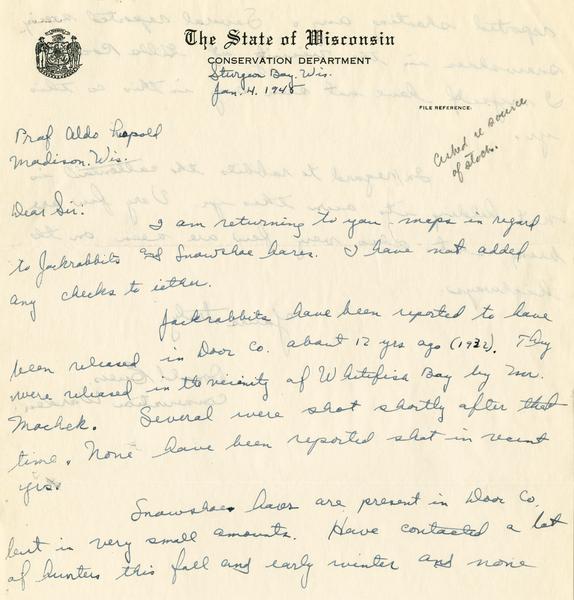 The State of Wisconsin
CONSERVATION DEPARTMENT
Sturgeon Bay, Wis.
Jan. 4. 1945
FILE REFERENCE:
Asked re source
of stock.
Prof Aldo Leopold
Madison. Wis.
Dear Sir.
I am returning to you maps in regard
to Jackrabbits and Snowshoe hares. I have not added
any checks to either.
Jackrabbits have been reported to have
been released in Door Co. about 12 yrs ago (1932). They
were released in the vicinity of Whitefish Bay by Mr.
Machek. Several were shot shortly after that
time. None have been reported shot in recent
yrs.
Snowshoe hares are present in Door Co.
but in very small amounts. Have contacted a lot
of hunters this fall and early winter and none